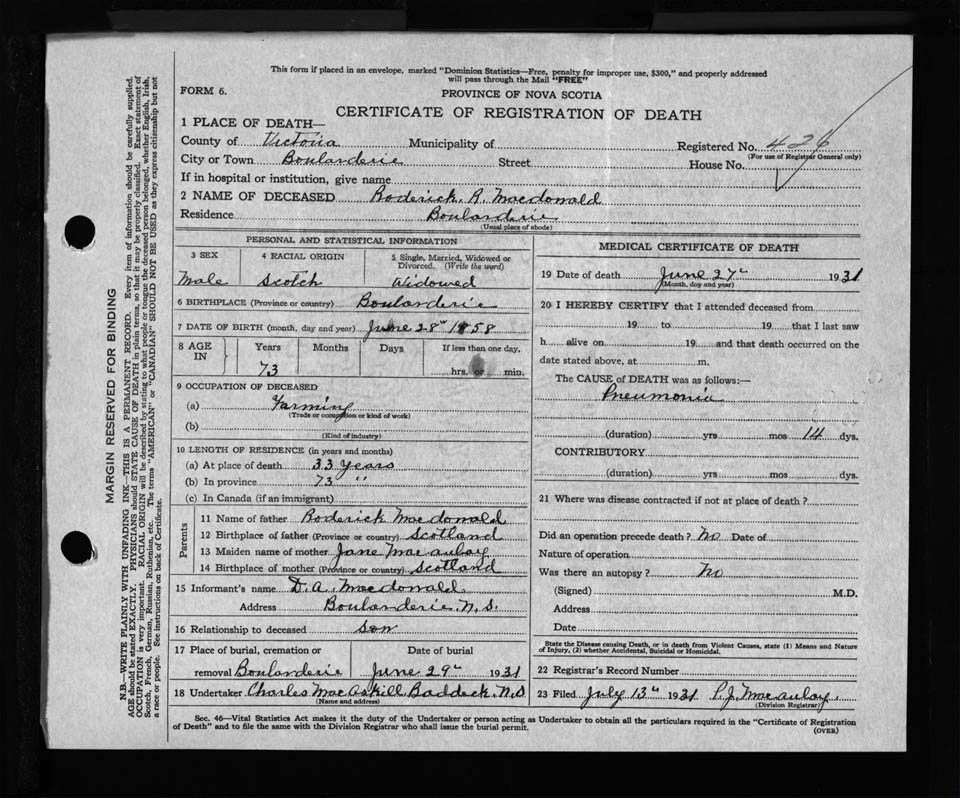 This form if placed in an envelope, marked "Dominion Statistics—Free, penalty for improper use, $300," and properly addressed
will pass through the Mail "FREE"
FORM 6.
PROVINCE OF NOVA SCOTIA
CERTIFICATE OF REGISTRATION OF DEATH
1 PLACE OF DEATH—
County of Victoria Municipality of Registered No. 426
(For use of Registrar General only)
City or Town Boularderie Street House No.
If in hospital or institution, give name
2 NAME OF DECEASED Roderick R. Macdonald
Residence Boularderie
(Usual place of abode)
PERSONAL AND STATISTICAL INFORMATION
3 SEX 4 RACIAL ORIGIN 5 Single, Married, Widowed or
Divorced. (Write the word)
Male Scotch Widowed
6 BIRTHPLACE (Province or country) Boularderie
7 DATE OF BIRTH (month, day and year) June 28th 1858
8 AGE IN Years Months Days If less than one day,
73 hrs. or min.
9 OCCUPATION OF DECEASED
(a) Farming
(Trade or occupation or kind of work)
(b)
(Kind of industry)
10 LENGTH OF RESIDENCE (in years and months)
(a) At place of death 33 Years
(b) In province 73 "
(c) In Canada (if an immigrant)
Parents
11 Name of father Roderick Macdonald
12 Birthplace of father (Province or country) Scotland
13 Maiden name of mother Jane Macaulay
14 Birthplace of mother (Province or country) Scotland
15 Informant's name D. A. Macdonald
Address Boularderie N.S.
16 Relationship to deceased son
17 Place of burial, cremation or Date of burial
removal Boularderie June 29th 1931
18 Undertaker Charles MacAskill Baddeck N.S
(Name and address)
MEDICAL CERTIFICATE OF DEATH
19 Date of death June 27th 1931
(Month, day and year)
20 I HEREBY CERTIFY that I attended deceased from
19 to 19 that I last saw
h alive on 19 and that death occurred on the
date stated above, at m.
The CAUSE of DEATH was as follows:—
Pneumonia
(duration) yrs mos 14 dys.
CONTRIBUTORY
(duration) yrs mos dys.
21 Where was disease contracted if not at place of death?
Did an operation precede death? No Date of
Nature of operation
Was there an autopsy? No
(Signed) M.D.
Address
Date
State the Disease causing Death, or in death from Violent Causes, state (1) Means and Nature
of Injury, (2) whether Accidental, Suicidal or Homicidal.
22 Registrar's Record Number
23 Filed July 13th 1931 P.J. Macaulay.
(Division Registrar)
Sec. 46—Vital Statistics Act makes it the duty of the Undertaker or person acting as Undertaker to obtain all the particulars required in the "Certificate of Registration
of Death" and to file the same with the Division Registrar who shall issue the burial permit.
(OVER)
MARGIN RESERVED FOR BINDING
N.B.—WRITE PLAINLY WITH UNFADING INK—THIS IS A PERMANENT RECORD. Every item of information should be carefully supplied.
AGE should be stated EXACTLY. PHYSICIANS should STATE CAUSE OF DEATH in plain terms, so that it may be properly classified. Exact statement of
OCCUPATION is very important. RACIAL ORIGIN will be described by stating to what people or tongue the deceased person belonged, whether English, Irish,
Scotch, French, German, Russian, Ruthenian, etc. The terms "AMERICAN" or "CANADIAN" SHOULD NOT BE USED as they express citizenship but not
a race or people. See instructions on back of Certificate.